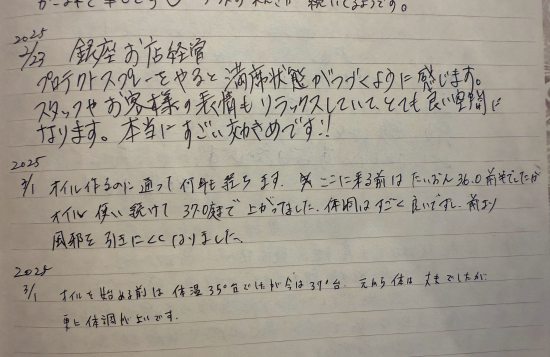 続いてるようです。
2025
2/23 銀座お店経営
プロテクトスプレーをやると満席状態がつづくように感じます。
スタッフやお客様の表情もリラックスしていて、とても良い空間に
なります。本当にすごい効きめです!!
2025
3/1 オイル作るのに通って何年も経ちます。ここに来る前はたいおん36.0前半でしたが
オイル使い続けて37.0度まで上がってました。体調はすごく良いですし、前より
風邪を引きにくくなりました。
2025
3/1 オイルを始める前は体温35°台でしたが今は37°台。元から体は丈夫でしたが、
更に体調が良いです。